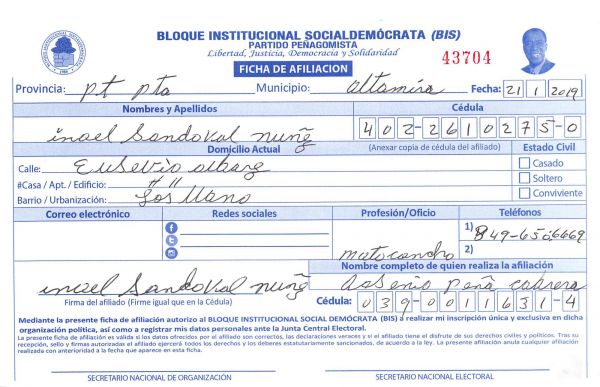 BLOQUE INSTITUCIONAL SOCIALDEMÓCRATA (BIS)
PARTIDO PEÑAGOMISTA
Libertad, Justicia, Democracia y Solidaridad
43704
FICHA DE AFILIACION
Provincia: pt pta Municipio: altamira Fecha: 21 1 2019
Nombres y Apellidos Cédula
inael Sandoval nuñz 402-2610275-0
Domicilio Actual (Anexar copia de cédula del afiliado) Estado Civil
Calle: Eusevio albarz Casado
#Casa / Apt. / Edificio: # 11 Soltero
Barrio / Urbanización: Los Llano Conviviente
Correo electrónico Redes sociales Profesión/Oficio Teléfonos
1) 849-6506669
2)
motoconcho
Nombre completo de quien realiza la afiliación
inael Sandoval nuñz Asenio Peña Cabrera
Firma del afiliado (Firme igual que en la Cédula) Cédula: 039-0011631-4
Mediante la presente ficha de afiliación autorizo al BLOQUE INSTITUCIONAL SOCIAL DEMÓCRATA (BIS) a realizar mi inscripción única y exclusiva en dicha
organización política, así como a registrar mis datos personales ante la Junta Central Electoral.
La presente ficha de afiliación es válida si los datos ofrecidos por el afiliado son correctos, las declaraciones veraces y si el afiliado tiene el disfrute de sus derechos civiles y políticos. Tras su
recepción, sello y firmas autorizadas el afiliado ejercerá todos los derechos y los deberes estatutariamente sancionados, de acuerdo a la ley. La presente afiliación anula cualquier afiliación
realizada con anterioridad a la fecha que aparece en esta ficha.
SECRETARIO NACIONAL DE ORGANIZACIÓN SECRETARIO NACIONAL ELECTORAL